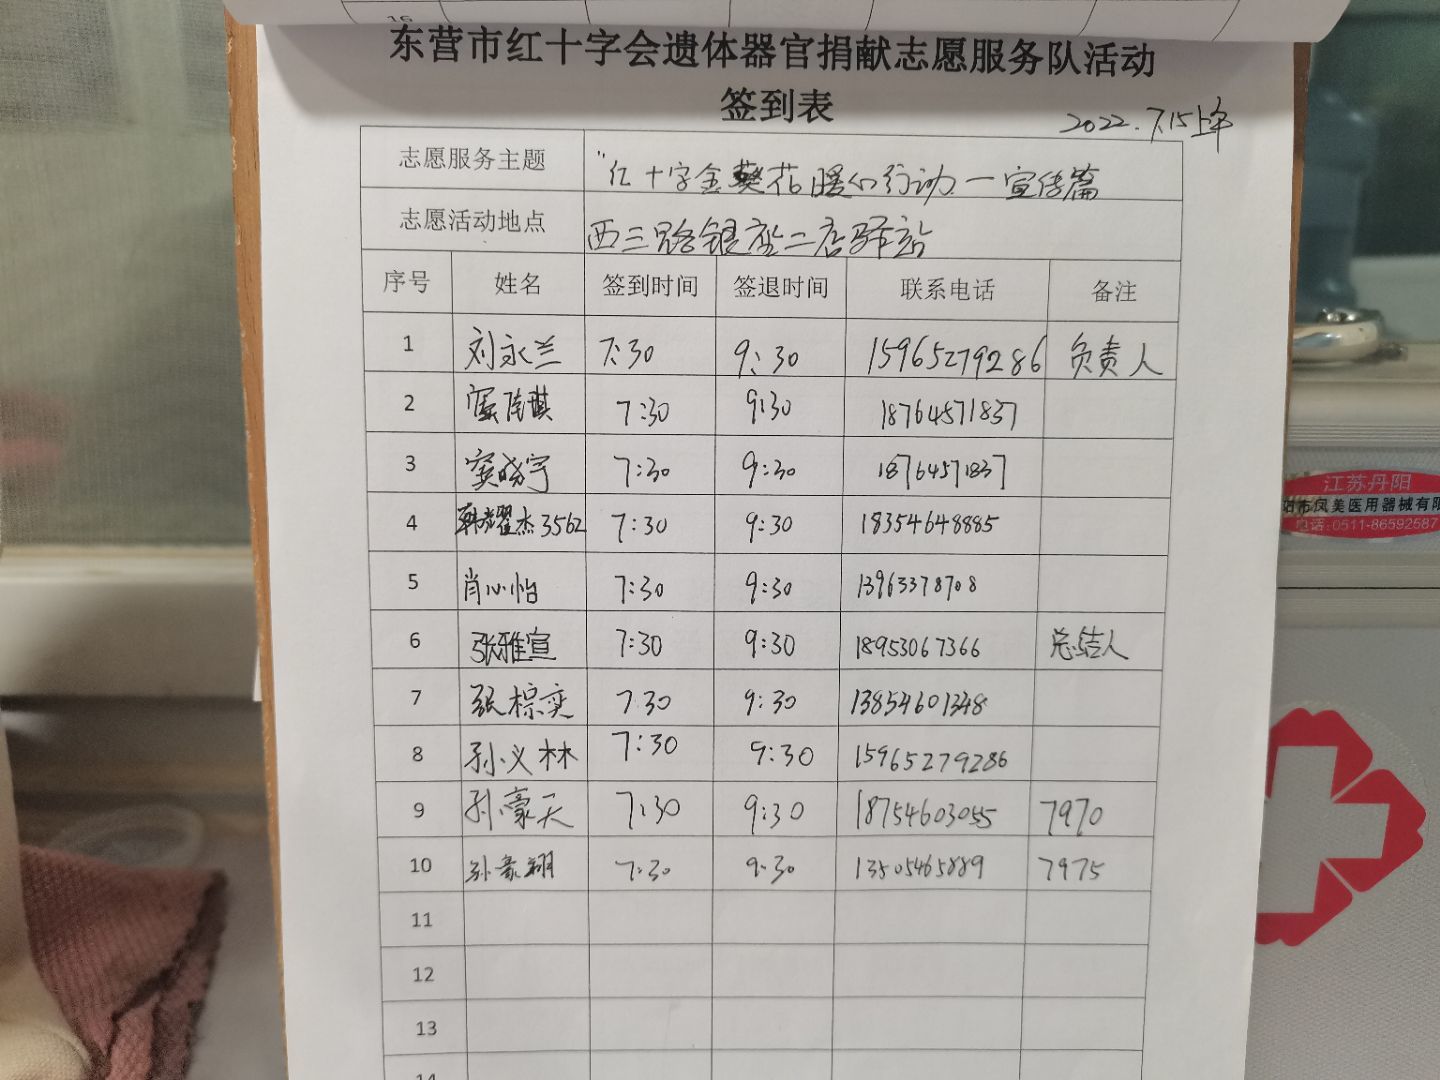 16
东营市红十字会遗体器官捐献志愿服务队活动
签到表
2022.7.15上午
志愿服务主题 "红十字金葵花暖心行动一宣传篇
志愿活动地点 西三路银座二店驿站
序号 姓名 签到时间 签退时间 联系电话 备注
1 刘永兰 7:30 9:30 15965279286 负责人
2 7:30 9:30 18764571837
3 窦晓宇 7:30 9:30 18764571837
4 韩耀杰3562 7:30 9:30 18354648885
5 肖心怡 7:30 9:30 13963378708
6 张雅宣 7:30 9:30 18953067366 总结人
7 张棕奕 7 30 9:30 13854601348
8 孙义林 7:30 9:30 15965279286
9 孙豪天 7:30 9:30 18754603055 7970
10 孙豪翔 7:30 9:30 13505465889 7975
11
12
13
14
江苏丹阳
阳市凤美医用器械有限
电话:0511-86592587